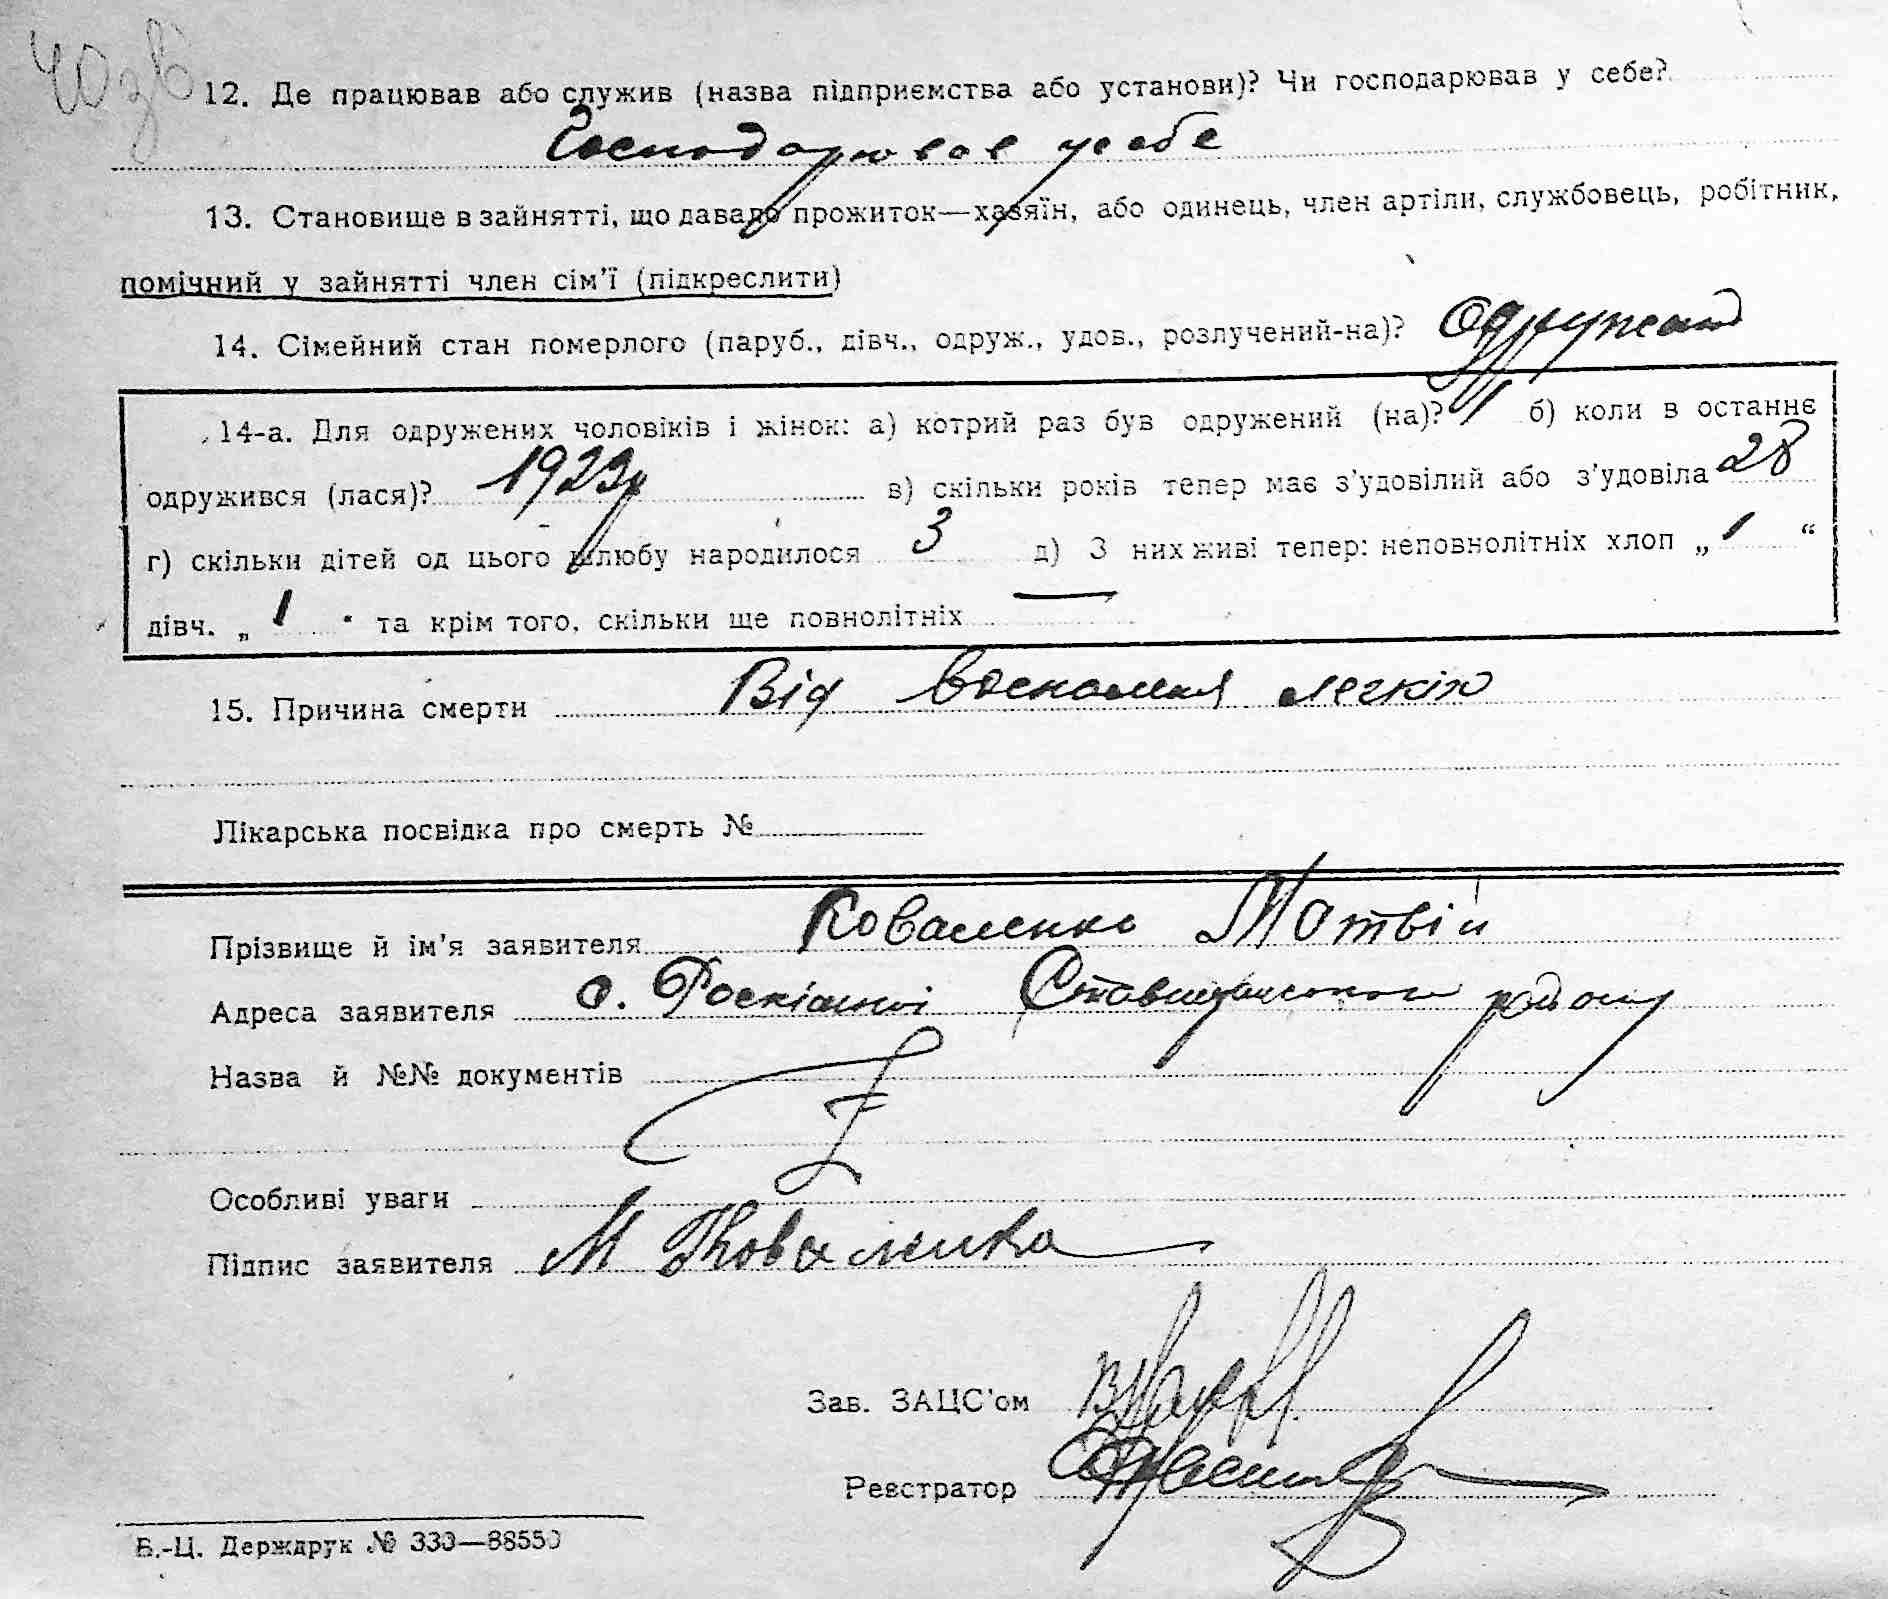 12. Де працював або служив (назва підприємства або установи)? Чи господарював у себе?
Господарював у себе
13. Становище в зайнятті, що давало прожиток—хазяїн, або одинець, член артіли, службовець, робітник,
помічний у зайнятті член сім'ї (підкреслити)
14. Сімейний стан померлого (паруб., дівч., одруж., удов., розлучений-на)?
14-а. Для одружених чоловіків і жінок: а) котрий раз був одружений (на)? 1 б) коли в останнє
одружився (лася)? 1923р в) скільки років тепер має з'удовілий або з'удовіла 28
г) скільки дітей од цього шлюбу народилося 3 д) З них живі тепер: неповнолітніх хлоп „ 1 “
дівч. „ 1 “ та крім того, скільки ще повнолітніх —
15. Причина смерти Від воспаления легкіх
Лікарська посвідка про смерть №
Прізвище й ім'я заявителя Коваленко Матвій
Адреса заявителя с. Роскішної Ставищанського району
Назва й №№ документів
Особливі уваги
Підпис заявителя М Коваленко
Зав. ЗАЦС'ом
Реєстратор
Б.-Ц. Держдрук № 330—88550